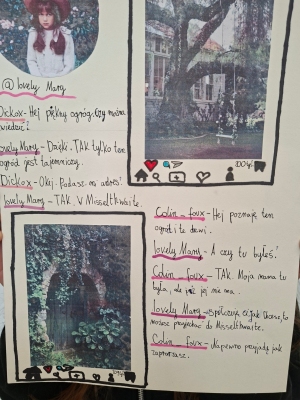 @lovely Mary
Dickox - Hej piękny ogród. Czy można
wiedzić?
lovely Mary - Dzięki. TAk tylko ten
ogród jest tajemniczy.
Dickox - Okej. Podasz mi adres?
lovely Mary - TAK. W Misselthwaite.
Colin_foux - Hej poznaję ten
ogród i te drzwi.
lovely Mary - A czy tu byłeś?
Colin_foux - TAK. Moja mama tu
była, ale już jej nie ma.
lovely Mary - Współczuję ci, jak chcesz, to
możesz przyjechać do Misselthwaite.
Colin_foux - Napewno przyjadę jak
zaprosisz.